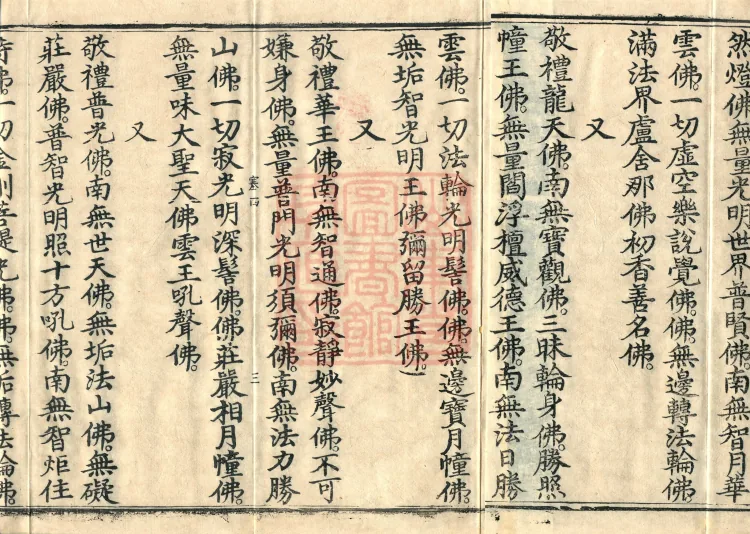 然燈佛無量光明世界普賢佛。南無智月華
雲佛。一切虛空樂說覺佛。佛無邊轉法輪佛。
滿法界盧舍那佛初香善名佛。
又
敬禮龍天佛。南無寶觀佛。三昧輪身佛。勝照
幢王佛。無量閻浮檀威德王佛。南無法日勝
雲佛。一切法輪光明髻佛。佛無邊寶月幢佛。
無垢智光明王佛彌留勝王佛。
又
敬禮華王佛。南無智通佛。寂靜妙聲佛。不可
嫌身佛。無量普門光明須彌佛。南無法力勝
寒四
三
山佛。一切寂光明深髻佛。佛莊嚴相月幢佛。
無量味大聖天佛雲王吼聲佛。
又
敬禮普光佛。南無世天佛。無垢法山佛。無礙
莊嚴佛。普智光明照十方吼佛。南無智炬住
持佛。一切金剛菩提光佛。佛無垢轉法輪佛。